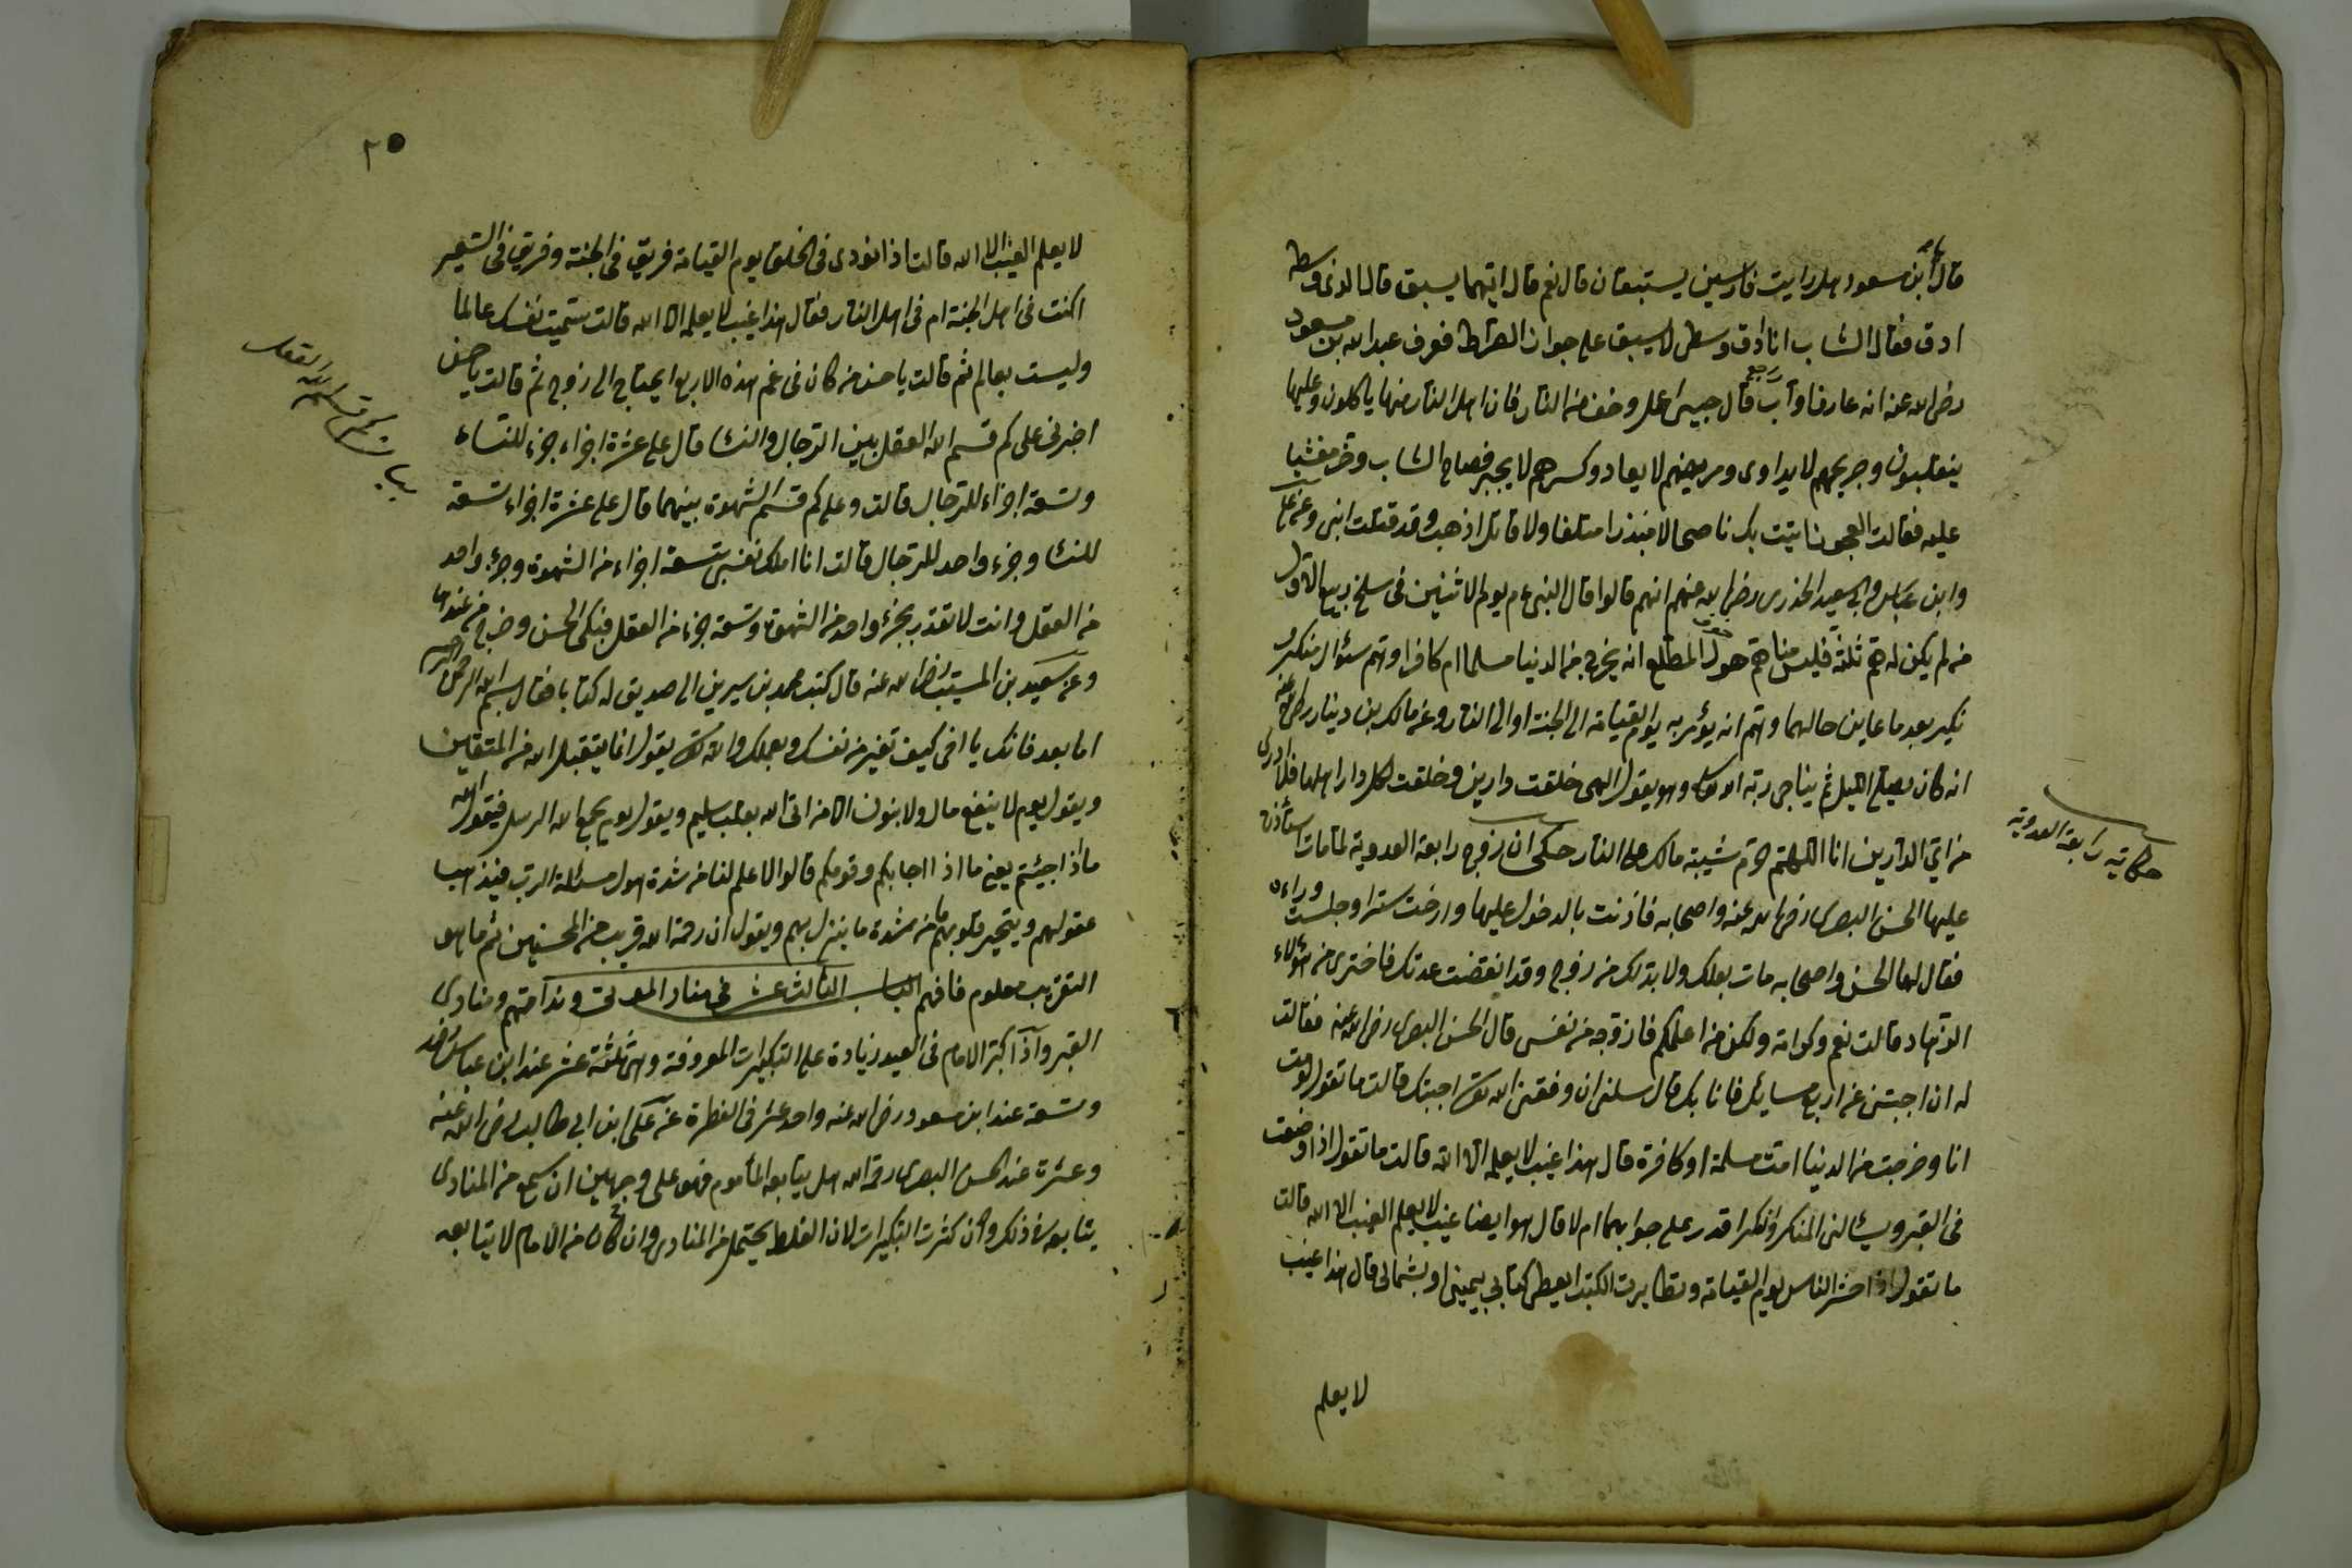 قال ابن مسعود هل رايت فارسين يستبقان قال نعم قال ايتهما يسبق قال الذي وسطه
ادق فقال الشاب انا ادق وسطي لاسبق على جواز الصراط فعرف عبد الله بن مسعود
رضى الله عنه انه عارف وآب رجع قال حبيبي اعمل وخف من النار فان اهل النار منها ياكلون وعليها
ينقلبون وجريحهم لا يداوى ومريضهم لا يعاد وكسرهم لا يجبر فصاح الشاب وخر مغشيا
عليه فقالت العجوز اتيت بك ناصحا لا منذرا متلفا ولا قاتلا اذهب وقد قتلت ابنى وعن على
وابن عباس وابي سعيد الخذرى رضى الله عنهم انهم قالوا قال النبى عم يوم الاثنين فى سلخ ربيع الاول
من لم يكن له هم ثلثة فليس منا هم هول المطلع انه يخرج من الدنيا مسلما ام كافرا وهم سئوال منكر و
نكير بعد ما عاين حالهما وهم انه يؤمر به يوم القيامة الى الجنة او الى النار وعن مالك بن دينار رضى الله عنه
انه كان يصلى الليل ثم يناجى ربه الاعلى وهو يقول الهى خلقت دارين وخلقت لكل دار اهلها فلا ادرى
من اي الدارين انا اللهم حرم شيبة مالك على النار حكى ان زوج رابعة العدوية لما مات استأذن
عليها الحسن البصرى رضى الله عنه واصحابه فاذنت بالدخول عليها وارخت سترا وجلست وراءه
فقال لها الحسن واصحابه مات بعلك ولا بد لك من زوج وقد انقضت عدتك فاختارى من هؤلاء
الزهاد قالت نعم وكرامة ولكن من اعلمكم فازوجه من نفسى قال الحسن البصرى رضى الله عنه فقالت
له ان اجبتنى عن اربع مسايل فانا بك قال سلنى ان وفقنى الله تعالى اجبتك قالت ما تقول لو مت
انا وخرجت من الدنيا امت مسلمة او كافرة قال هذا غيب لا يعلمه الا الله قالت ما تقول اذا وضعت
فى القبر ويسالنى المنكر والنكير اقدر على جوابهما ام لا قال هو ايضا غيب لا يعلم الغيب الا الله قالت
ما تقول اذا حشر الناس يوم القيامة وتطايرت الكتب ايعطى كتابي بيمينى او بشمالى قال هذا غيب
لا يعلم
حكاية رابعة العدوية
٢٥
لا يعلم الغيب الا الله قالت اذا نودى فى الخلق يوم القيامة فريق فى الجنة وفريق فى السعير
اكنت فى اهل الجنة ام فى اهل النار فقال هذا غيب لا يعلمه الا الله قالت سميت نفسك عالما
وليست بعالم ثم قالت يا حسن من كان فى غم هذه الاربع ايحتاج الى زوج ثم قالت يا حسن
اخبرنى على كم قسم الله العقل بين الرجال والنسا قال على عشرة اجزاء جزء للنساء
وتسعة اجزاء للرجال قالت وعلى كم قسم الشهوة بينهما قال على عشرة اجزاء تسعة
للنسا وجزء واحد للرجال قالت انا املك نفسى بتسعة اجزاء من الشهوة وجزء واحد
من العقل وانت لا تقدر بجزء واحد من الشهوة وتسعة اجزء من العقل فبكى الحسن وخرج من عندها
وعن سعيد بن المسيب رضى الله عنه قال كتب محمد بن سيرين الى صديق له كتابا فقال بسم الله الرحمن الرحيم
اما بعد فانك يا اخى كيف تغتر من نفسك وبعملك والله تعالى يقول انما يتقبل الله من المتقين
ويقول يوم لا ينفع مال ولا بنون الا من اتى الله بقلب سليم ويقول يوم يجمع الله الرسل فيقول الله
ماذا اجئتم يعنى ما اذا اجابكم وقومكم قالوا لا علم لنا من شدة هول مسئلة الرب فيذهب
عقولهم ويتحير قلوبهم من شدة ما ينزل بهم ويقول ان رحمة الله قريب من المحسنين ثم ما هو
التقريب معلوم فافهم الباب الثالث عشر فى منادى الموتى وندامتهم ومنادى
القبر واذا كبر الامام فى العيد زيادة على التكبيرات المعروفة وهى ثلثة عشر عند ابن عباس رضى الله عنه
وتسعة عند ابن مسعود رضى الله عنه واحد عشر فى الفطرة عن على ابن ابي طالب رضى الله عنه
وعشرة عند الحسن البصرى رحمه الله هل يتابعه المأموم فهو على وجهين ان سمع من المنادى
يتابعه فى ذلك وان كثرت التكبيرات لان الغلط يحتمل من المنادى وان كان من الامام لا يتابعه
بيان كم قسم الله العقل